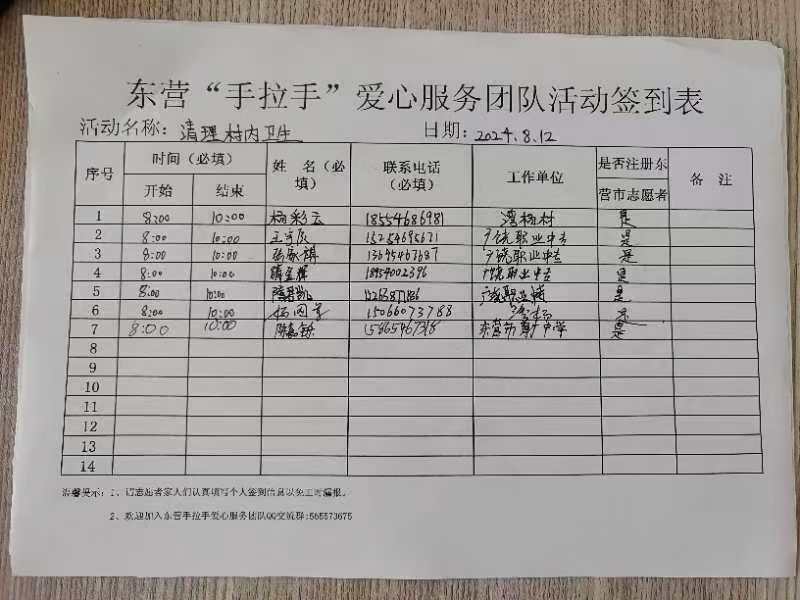 东营“手拉手”爱心服务团队活动签到表
活动名称：清理村内卫生 日期：2024.8.12
序号 时间（必填） 姓 名（必填） 联系电话（必填） 工作单位 是否注册东营市志愿者 备 注
开始 结束
1 8:00 10:00 杨彩云 18554686981 湾杨村 是
2 8:00 10:00 15254695671 广饶职业中专 是
3 8:00 10:00 13695467687 广饶职业中专 是
4 8:00 10:00 18954002396 广饶职业中专 是
5 8:00 10:00 是
6 8:00 10:00 15066073788 湾杨 是
7 8:00 10:00 是
8
9
10
11
12
13
14
温馨提示：1、请志愿者家人们认真填写个人签到信息以免工时漏报。
2、欢迎加入东营手拉手爱心服务团队QQ交流群:565573675